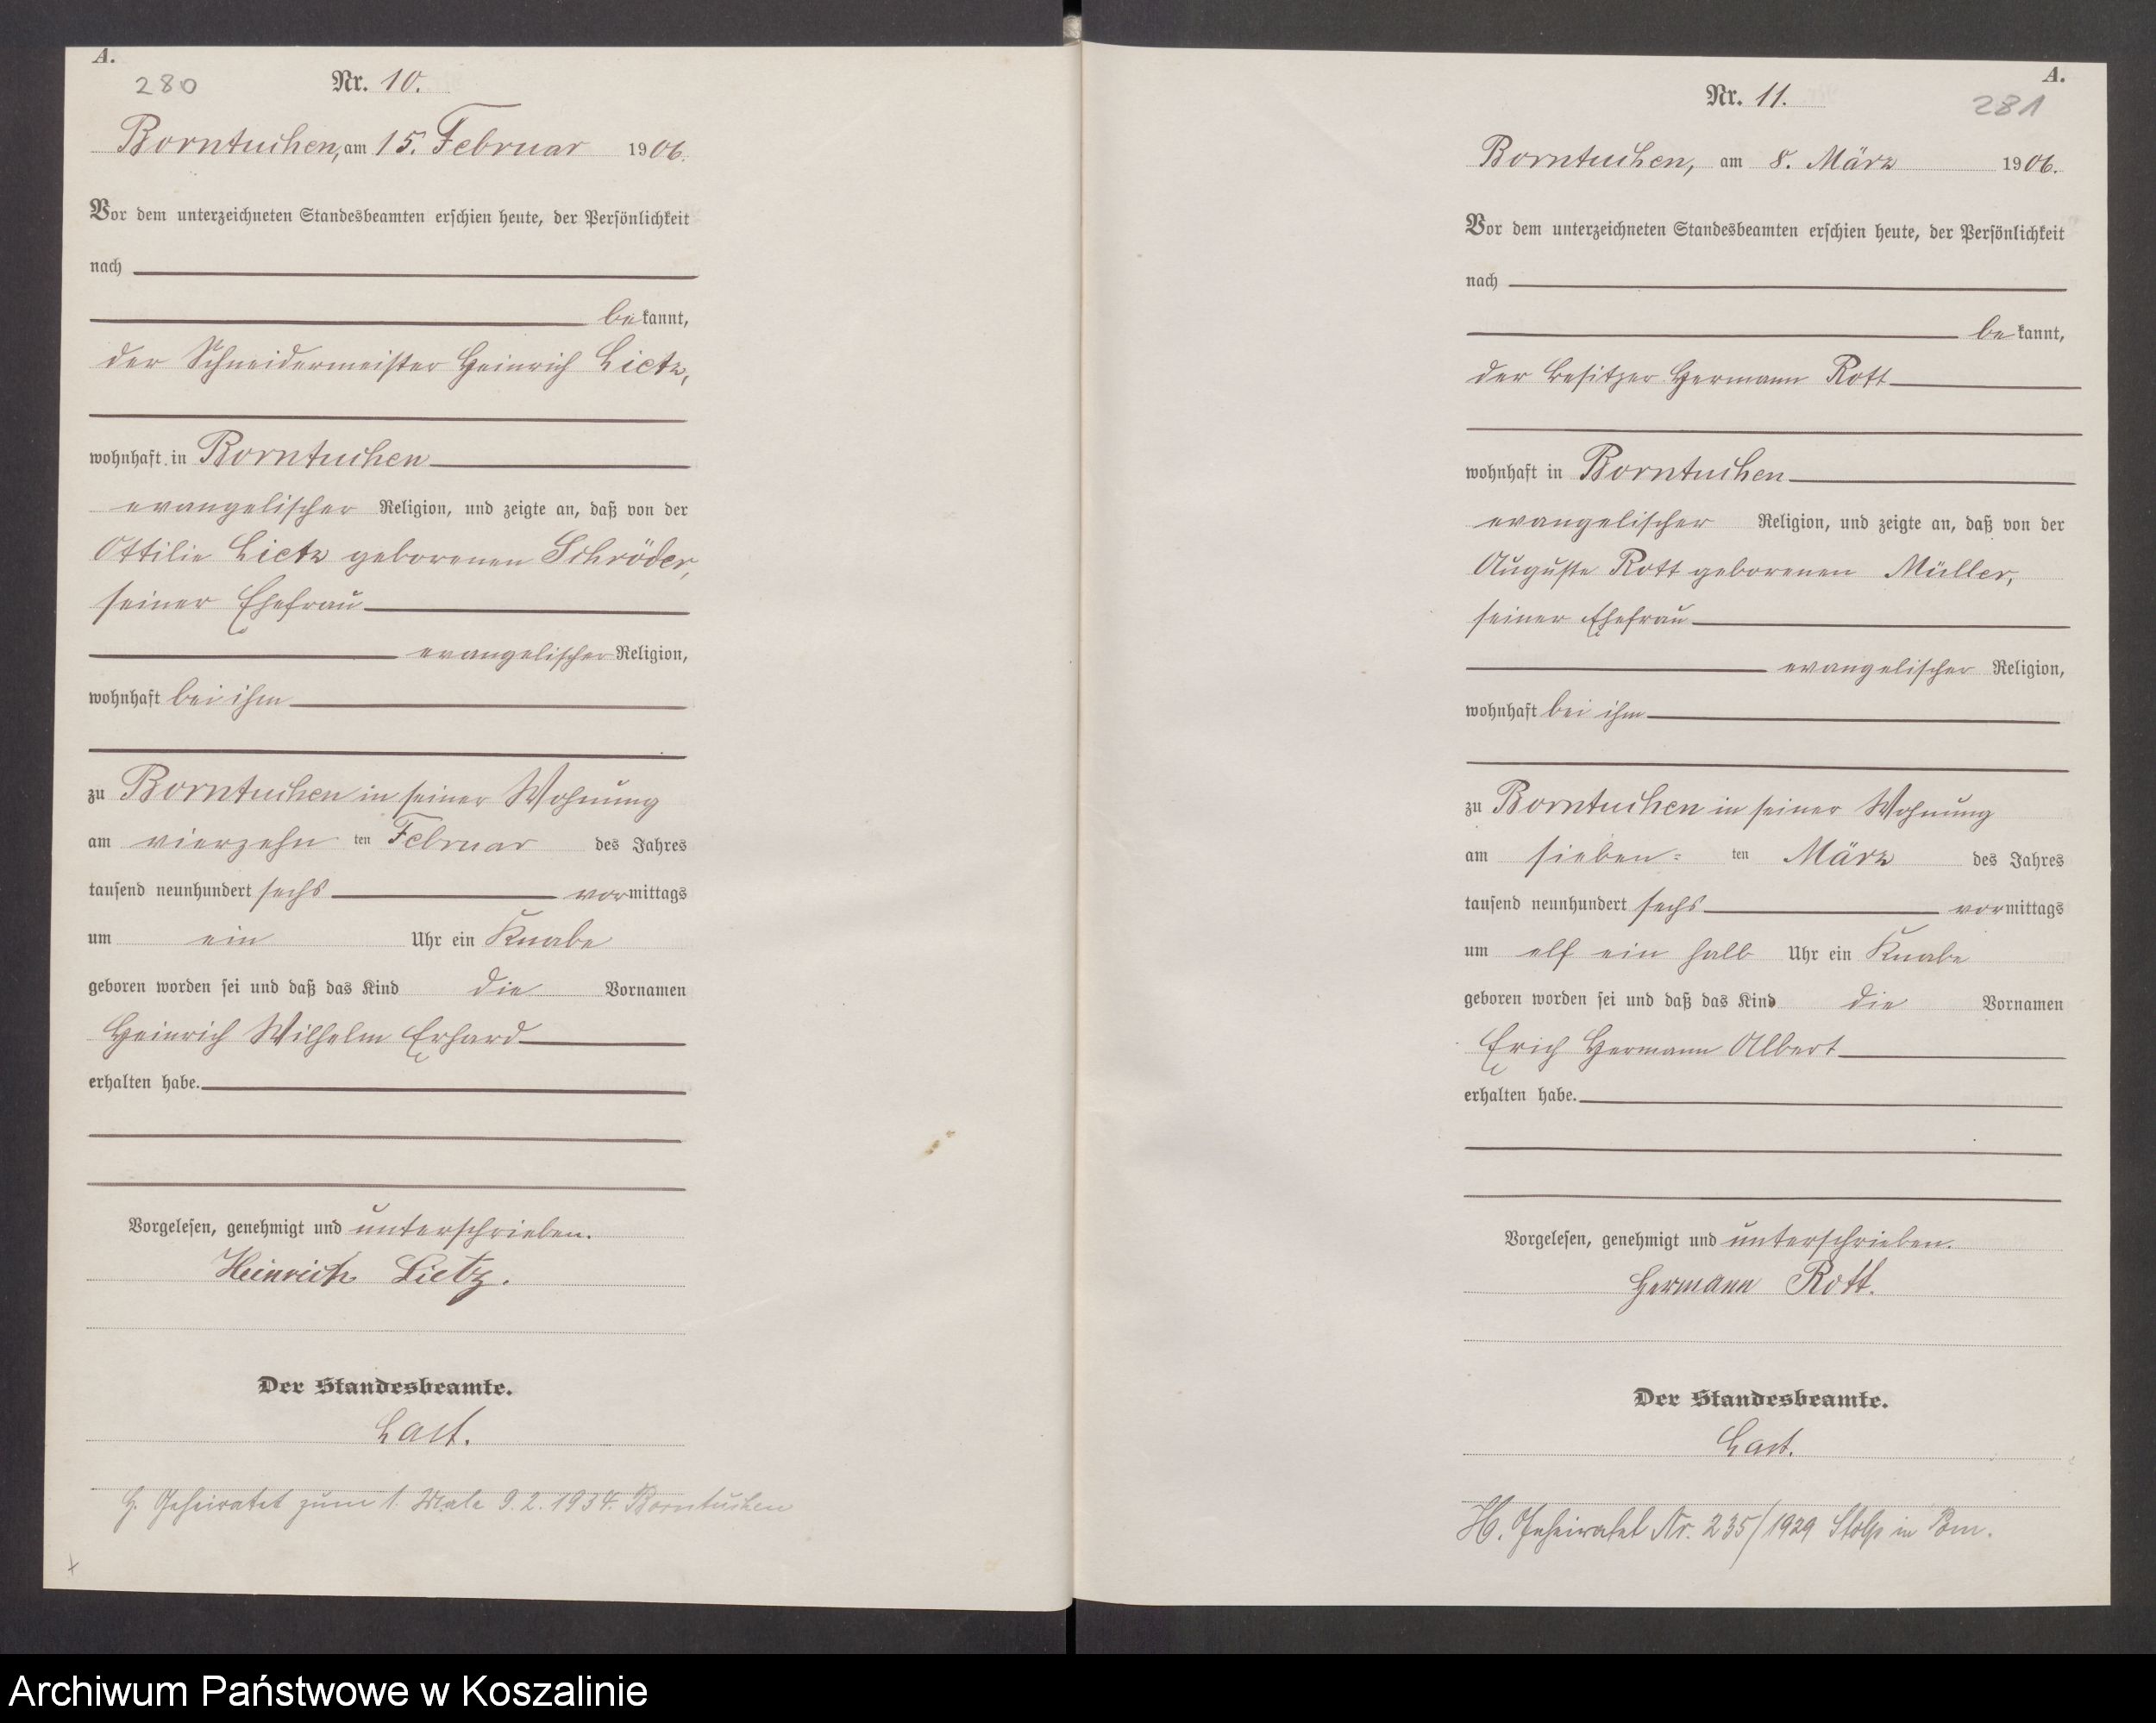 A.
280
Nr. 10.
Borntuchen, am 15. Februar 1906.
Vor dem unterzeichneten Standesbeamten erschien heute, der Persönlichkeit
nach
bekannt,
der Schneidermeister Heinrich Lietz,
wohnhaft in Borntuchen
evangelischer Religion, und zeigte an, daß von der
Ottilie Lietz geborenen Schröder,
seiner Ehefrau
evangelischer Religion,
wohnhaft bei ihm
zu Borntuchen in seiner Wohnung
am vierzehn ten Februar des Jahres
tausend neunhundert sechs vormittags
um ein Uhr ein Knabe
geboren worden sei und daß das Kind die Vornamen
Heinrich Wilhelm Erhard
erhalten habe.
Vorgelesen, genehmigt und unterschrieben.
Heinrich Lietz.
Der Standesbeamte.
G. Geheiratet zum 1. Male 9.2.1934. Borntuchen
A.
Nr. 11.
281
Borntuchen, am 8. März 1906.
Vor dem unterzeichneten Standesbeamten erschien heute, der Persönlichkeit
nach
bekannt,
der Besitzer Hermann Rott
wohnhaft in Borntuchen
evangelischer Religion, und zeigte an, daß von der
Auguste Rott geborenen Müller,
seiner Ehefrau
evangelischer Religion,
wohnhaft bei ihm
zu Borntuchen in seiner Wohnung
am sieben= ten März des Jahres
tausend neunhundert sechs vormittags
um elf ein halb Uhr ein Knabe
geboren worden sei und daß das Kind die Vornamen
Erich Hermann Albert
erhalten habe.
Vorgelesen, genehmigt und unterschrieben.
Hermann Rott.
Der Standesbeamte.
H. Geheiratet Nr. 235/1929 Stolp in Pom.
Archiwum Państwowe w Koszalinie